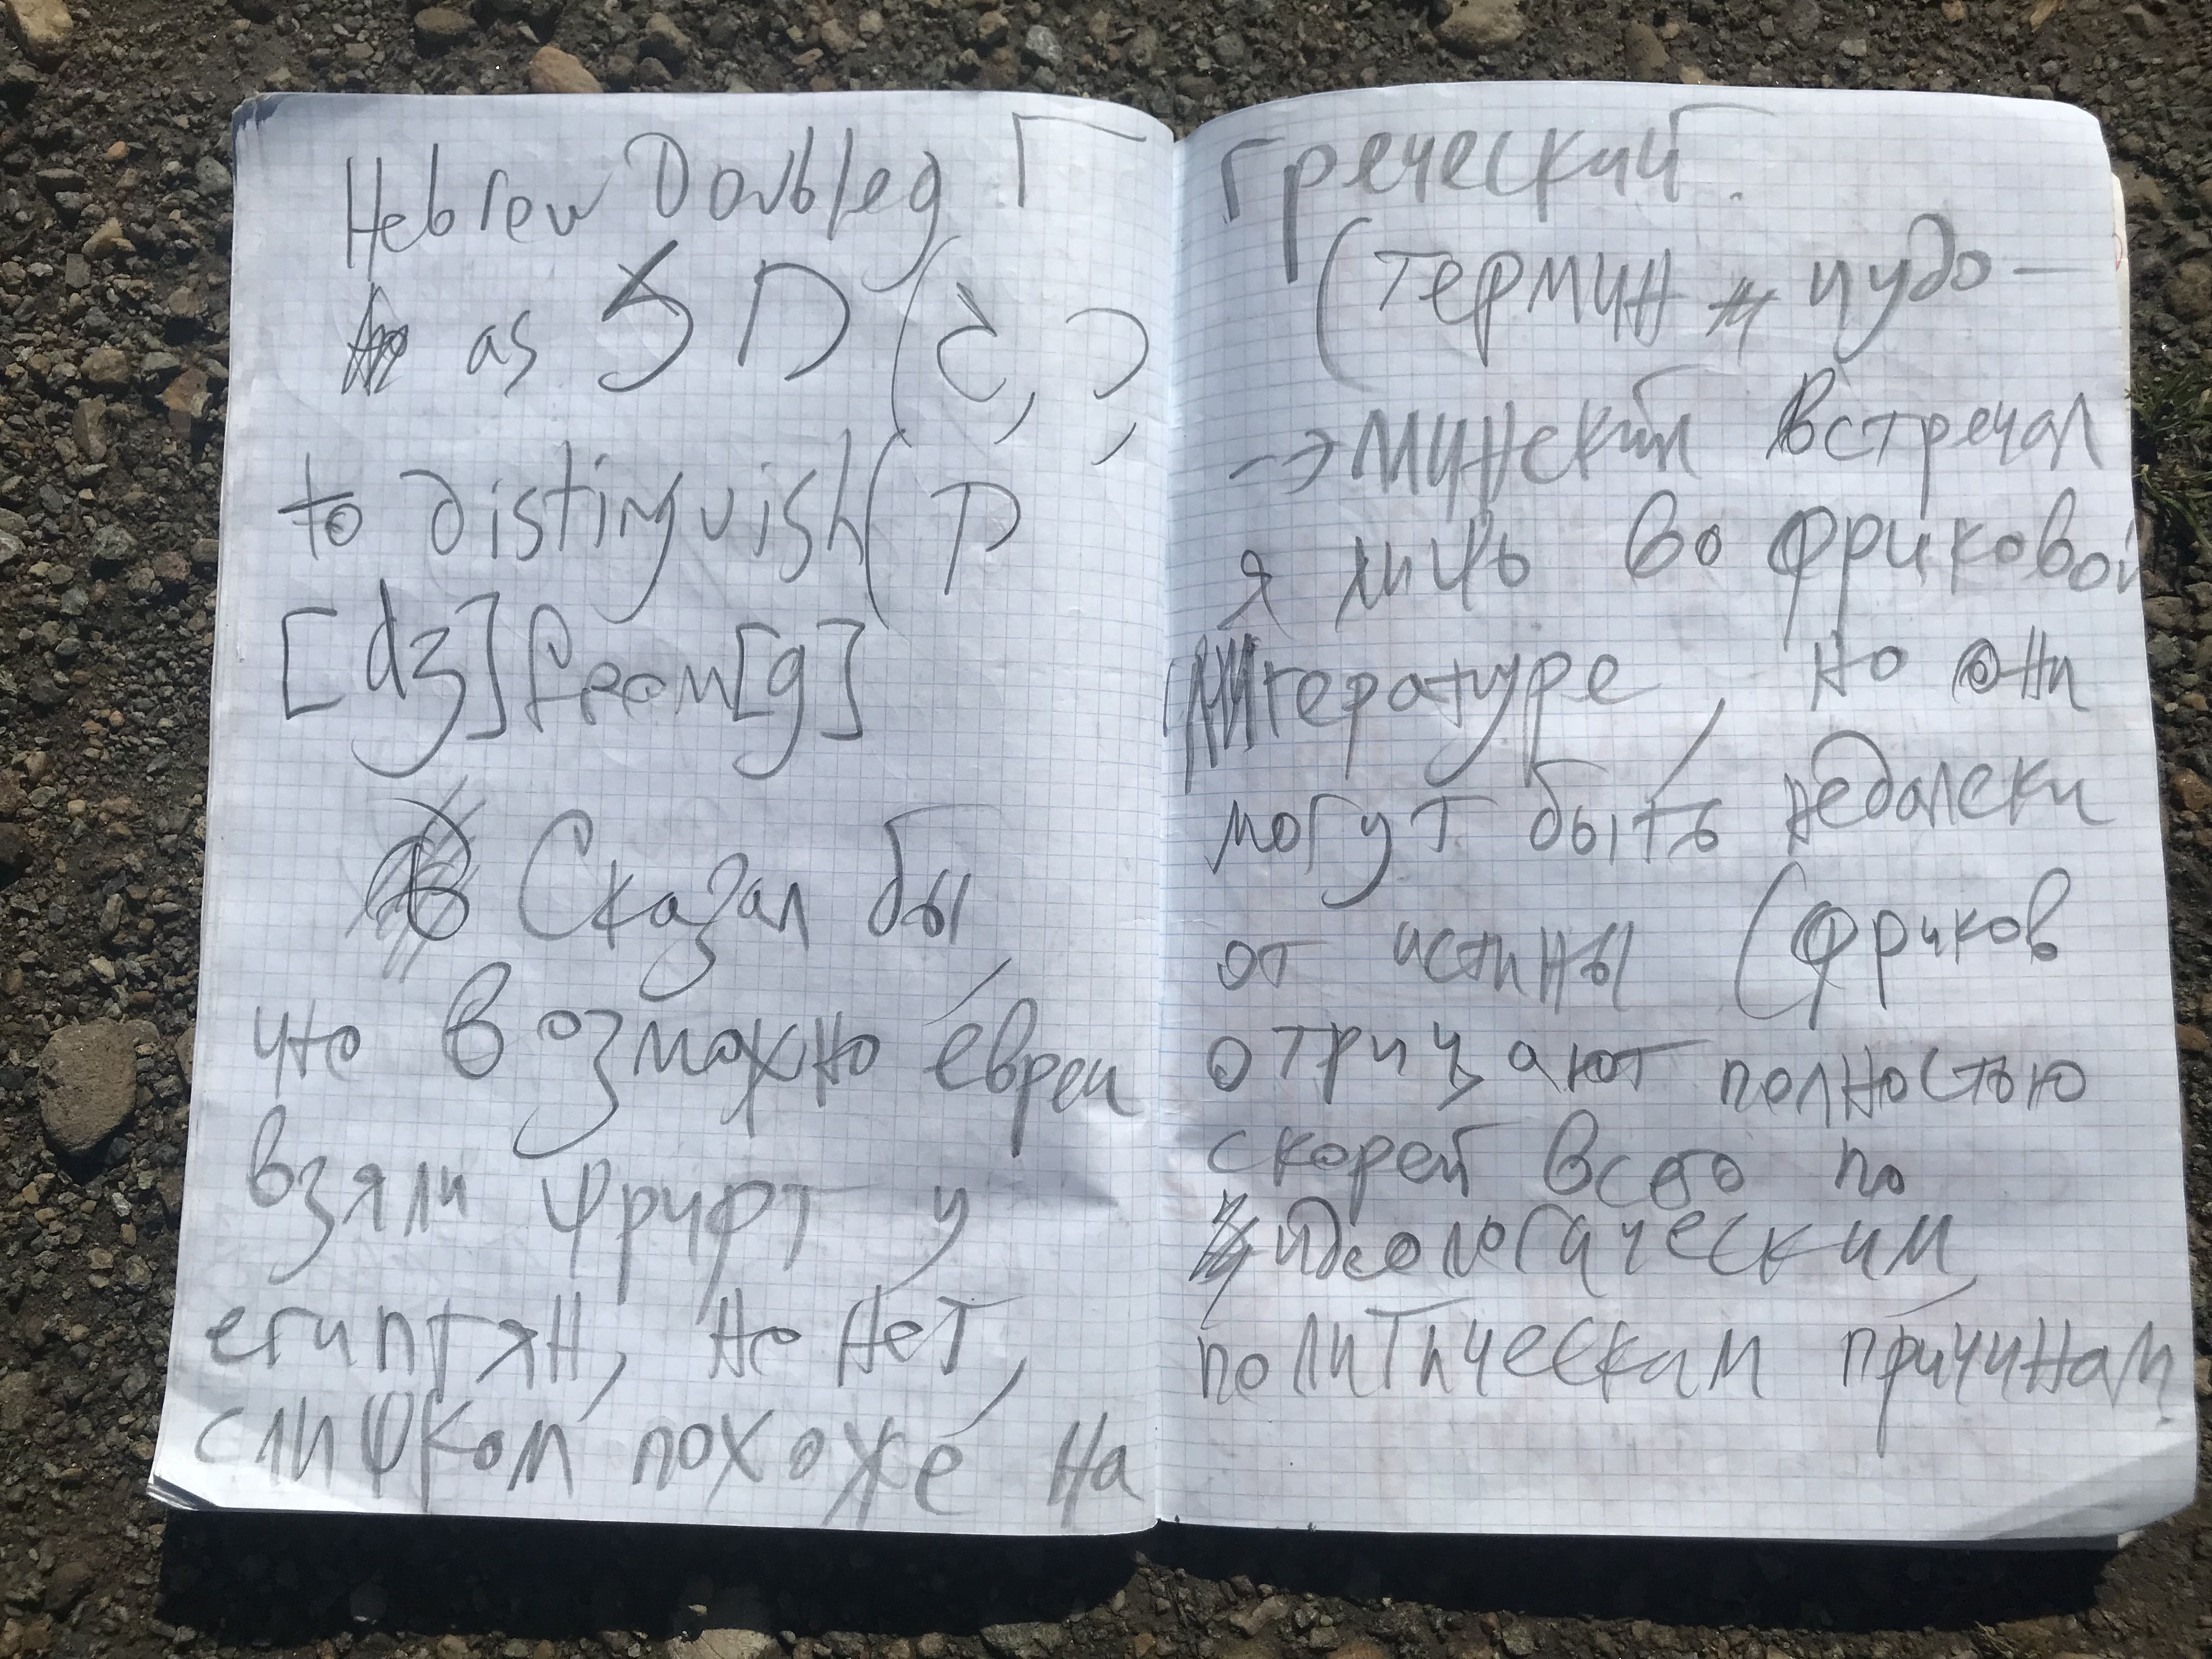 Hebrew Doubled Г
as
to distinguish (
[dʒ] from [g]
Сказал бы
что возможно евреи
взяли шрифт у
египтян, но нет
слишком похоже, на
греческий.
(термин иудо-
-эллинский встречал
я лишь во фриковой
литературе но они
могут быть недалеки
от истины (фриков
отрицают полностью
скорей всего по
идеологическим
политическим причинам